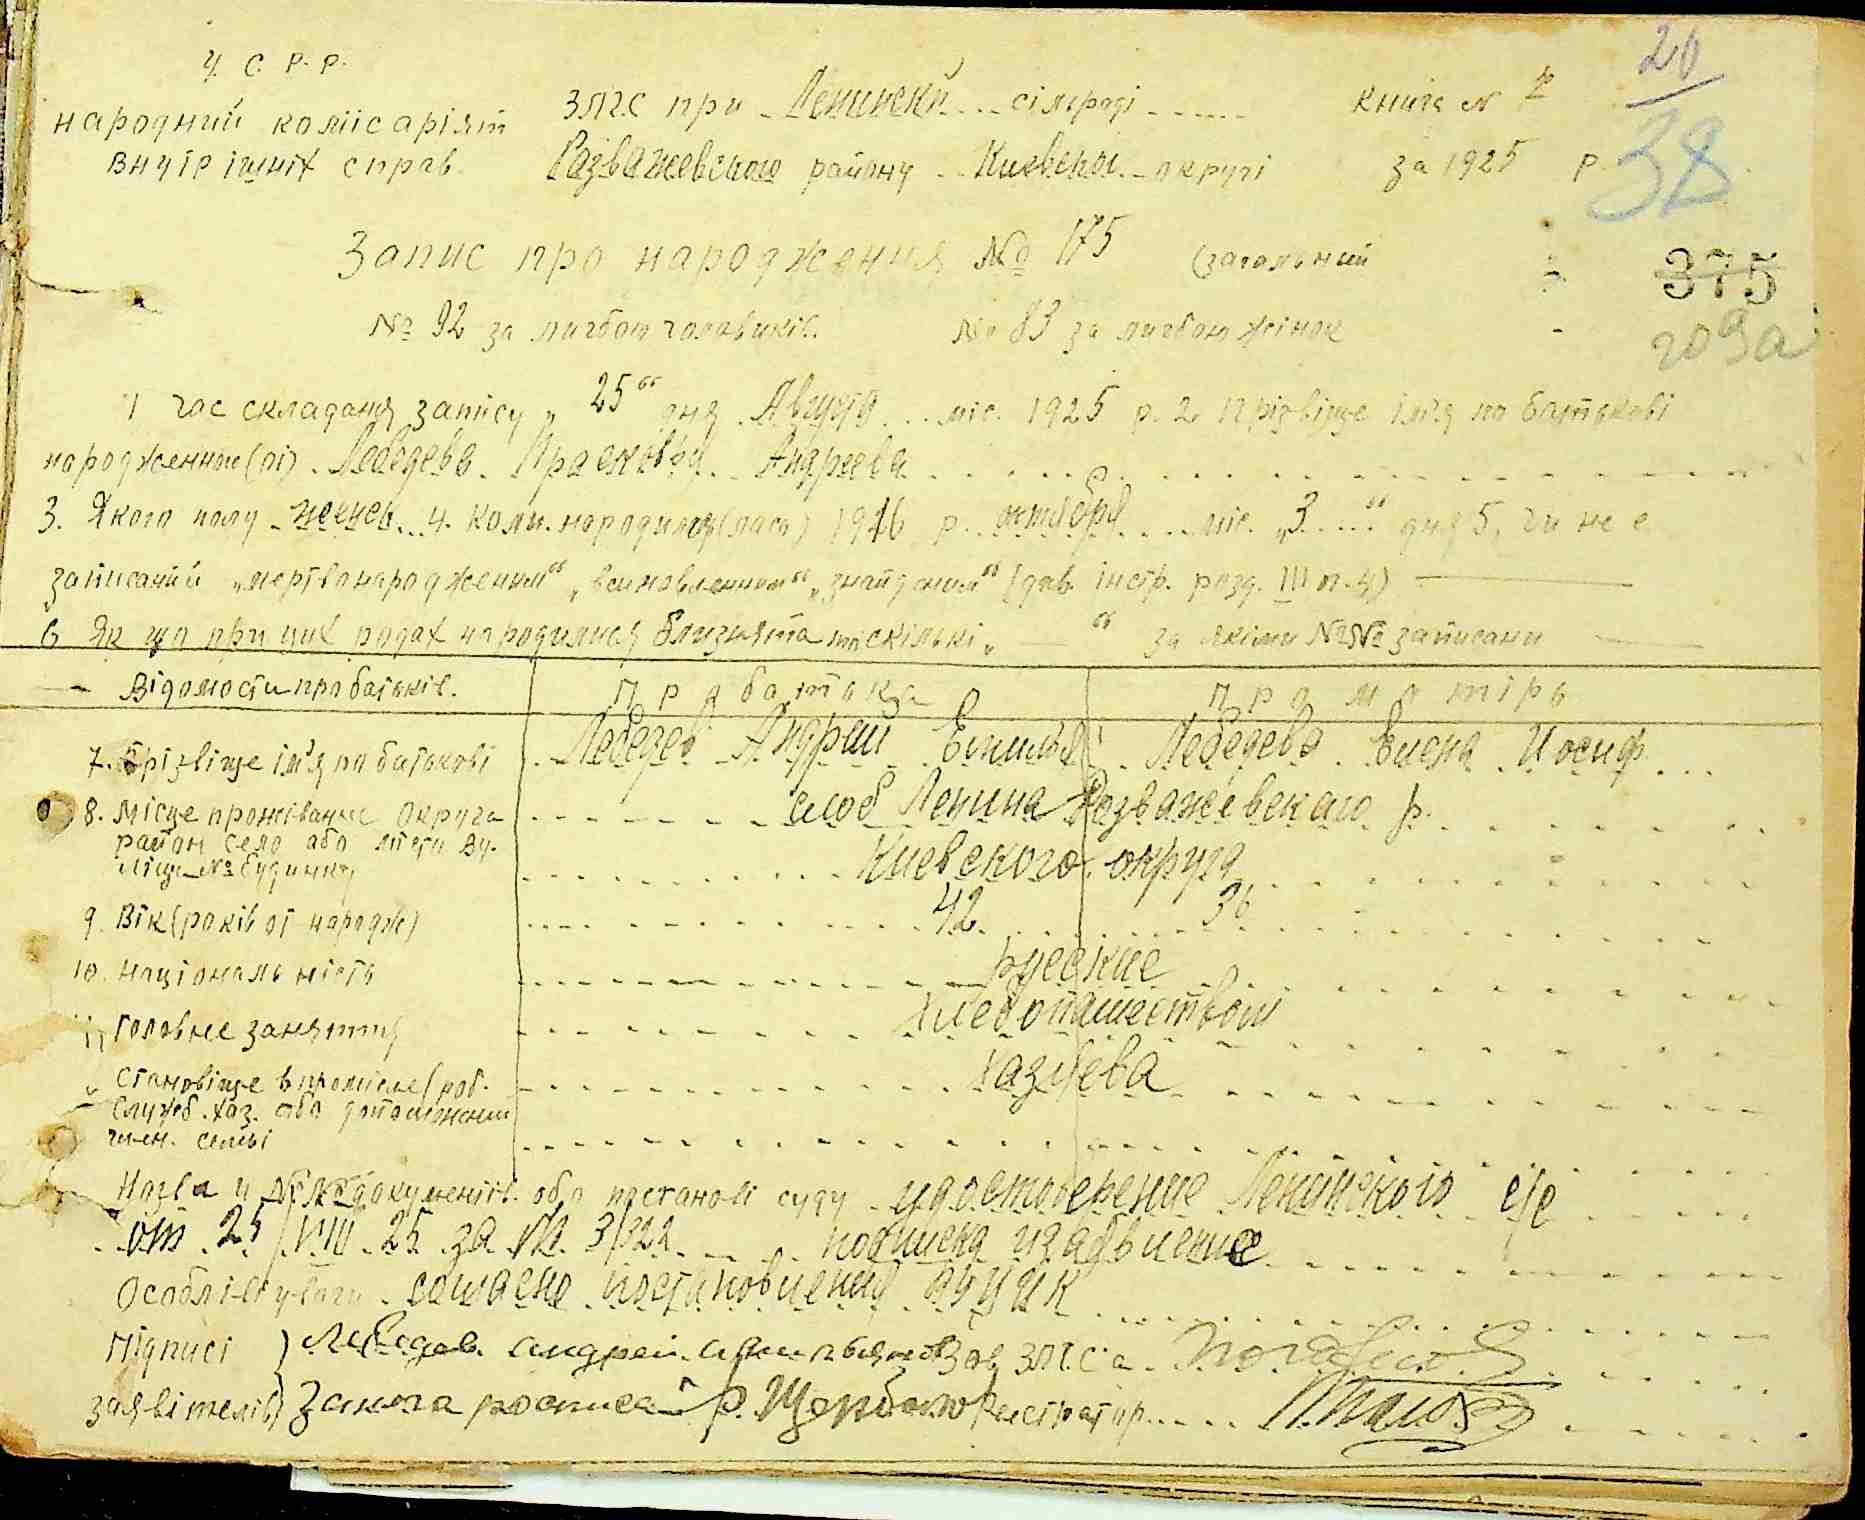 У. С. Р. Р.
20
народний комісаріят
внутрішніх справ
ЗАГС при Ленінській сільраді
Розважевского району Киевской округи
Книга №
за 1925 р.
38
Запис про народження № 175 (загальний
375
№ 92 за лічбою чоловіків. № 83 за лічбою жінок
209а
1 час складання запису „25“ дня Августа міс. 1925 р. 2. Прізвіще імʼя по батькові
народженного(ої) Лебедева Прасковья Андреева
3. Якого полу женск. 4. Коли народився(лась) 1916 р. октября міс. „3“ дня 5. Чи не є
записаний „мертвонародженим“ „всиновленним“ „знайденим“ (див. інстр. розд. III п. 4)
6 Як що при цих родах народилися близнята то скількі „ “ за якими №№ записани
Відомости про батьків.
Про батька
Про матірь
7. Прізвіще імʼя по батькові
Лебедев Андрий Емильян
Лебедева Елена Иосиф
8. Місце проживанне округа
район село або місто ву-
лиця № будинку
слоб Ленина Розважевского р.
Киевского округа
9. Вік (років от народж)
42
36
10. Національність
русские
11 Головне заняття
хлебопашеством
Становіще в промисле (роб.
служб. хаз. або допоможний
член. семьі
хазяева
Назва и №№ документів або постанові суду удостоверение Ленинского с/с
от 25/VIII 25 за № 3/322 подписка изаявление
Особліві уваги согласно постановления ВУЦИК
Підписі
заявителів
Лебедев андрей
Зав ЗАГСʼа
Регістратор